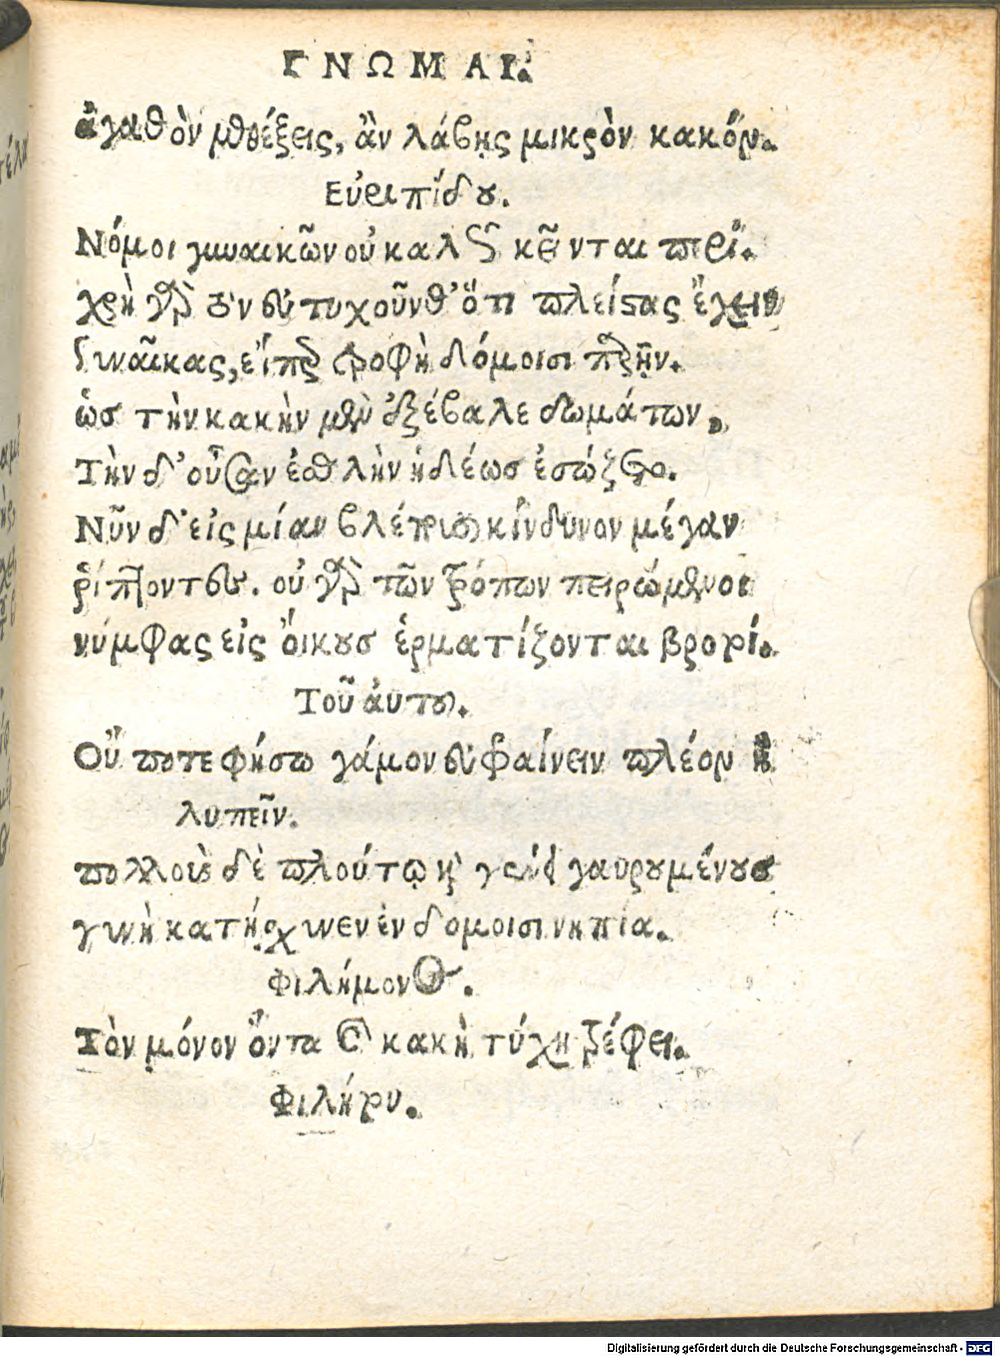 ΓΝΩΜΑΙ.
ἀγαθὸν μεθέξεις, ἂν λάβῃς μικρὸν κακόν.
Εὐριπίδου.
Νόμοι γυναικῶν οὐ καλῶς κεῖνται πέρι.
χρὴ γὰρ τὸν εὐτυχοῦνθ' ὅτι πλείστας ἔχειν
γυναῖκας, εἴπερ τροφὴ δόμοισι παρῆν.
ὡσ τὴν κακὴν μὲν ἐξέβαλε δωμάτων,
Τὴν δ' οὖσαν ἐσθλὴν ἡδέωσ ἐσώζετο.
Νῦν δ' εἰς μίαν βλέπουσι κίνδυνον μέγαν
ῥίπτοντες. οὐ γὰρ τῶν τρόπων πειρώμενοι
νύμφας εἰς ὄικουσ ἑρματίζονται βροτοί.
Τοῦ ἀυτου.
Οὔ ποτε φήσω γάμον εὐφραίνειν πλέον ἢ
λυπεῖν.
πολλοὺς δὲ πλούτῳ καὶ γένει γαυρουμένουσ
γυνὴ κατῄσχυνεν ἐν δομοισι νηπία.
Φιλήμονος.
Τὸν μόνον ὄντα καὶ κακὴ τύχη τρέφει.
Φιλήρου.
Digitalisierung gefördert durch die Deutsche Forschungsgemeinschaft - DFG